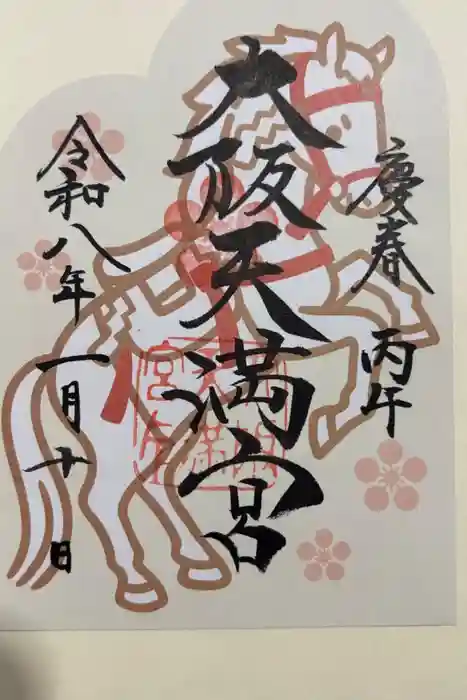 慶春
丙午
大阪天満宮
令和八年
一月十日